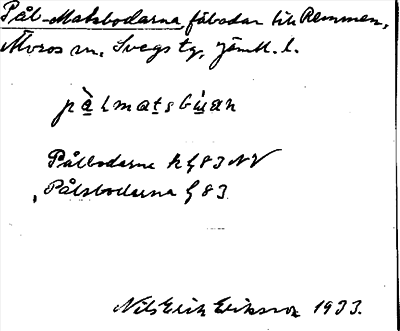 Pål-Matsbodarna, fäbodar till Remmen,
Älvros sn, Svegs tg, Jämtl. l.
pàlmatsbúan
Pålbodarna k G 83 NV
Pålsbodarna G 83
Nils Erik Eriksson 1933.